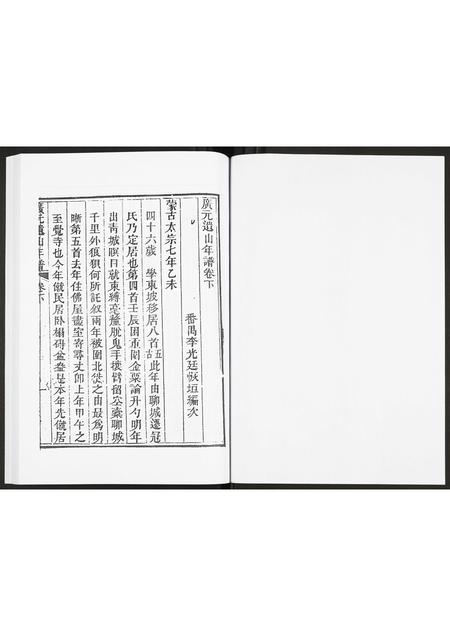 廣元遺山年譜卷下
番禺李光廷恢垣編次
蒙古太宗七年乙未
四十六歲 學東坡移居八首五古此年由聊城遷冠
氏乃定居也第四首壬辰困重圍金粟論升勺明年
出青城瞑目就束縛毫釐脫鬼手攘臂留空橐聊城
千里外狼狽何所託叙兩年被圍北徙之由最爲明
晰第五首去年住佛屋盡室寄尋丈卽上年甲午之
至覺寺也今年僦民居臥榻礙盆盎是本年先僦居
廣元遺山年譜 卷下